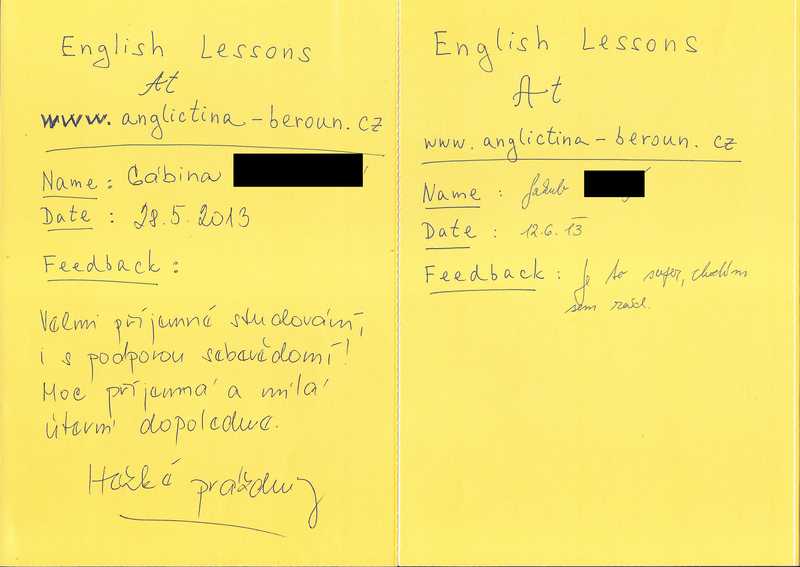 English Lessons
At
www.anglictina-beroun.cz
Name: Gábina
Date: 28.5.2013
Feedback:
Velmi příjemné studování,
i s podporou sebevědomí!
Moc příjemná a milá
úterní dopoledne.
Hezké prázdniny
English Lessons
At
www.anglictina-beroun.cz
Name: Jakub
Date: 12.6.13
Feedback: Je to super, chodím
sem rád.